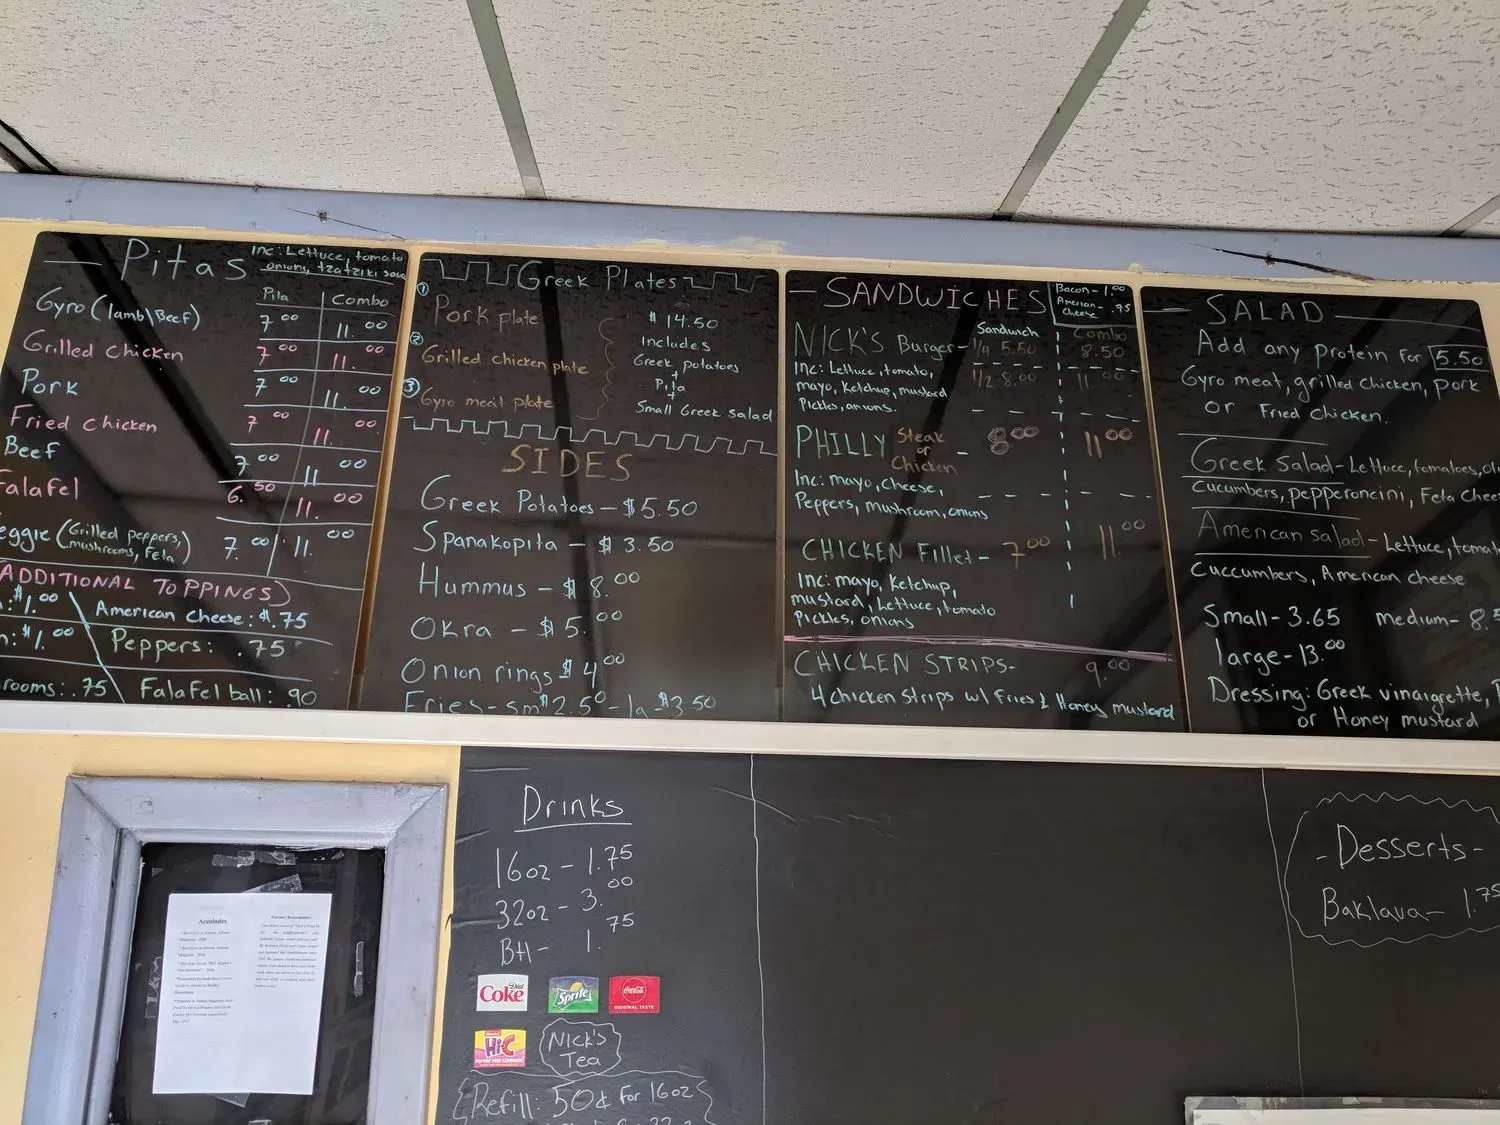 Pitas
Inc: Lettuce, tomato
onions, tzatziki
Pita Combo
Gyro (lamb\Beef) 7.00 11.00
Grilled Chicken 7.00 11.00
Pork 7.00 11.00
Fried Chicken 7.00 11.00
Beef 7.00 11.00
Falafel 6.50 11.00
eggie (Grilled peppers, mushrooms, Feta) 7.00 11.00
ADDITIONAL TOPPINGS)
: $1.00 American cheese: $.75
: $1.00 Peppers: .75
rooms: .75 Falafel ball: .90
Greek Plates
① Pork plate
② Grilled chicken plate
③ Gyro meat plate
$14.50
Includes
Greek potatoes
+
Pita
+
Small Greek Salad
SIDES
Greek Potatoes - $5.50
Spanakopita - $3.50
Hummus - $8.00
Okra - $5.00
Onion rings $4.00
Fries - sm $2.50 - la $3.50
- SANDWICHES
Bacon - 1.00
American Cheese - .95
Sandwich Combo
NICK'S Burger - 1/4 5.50 8.50
1/2 8.00 11.00
Inc: Lettuce, tomato,
mayo, Ketchup, mustard
Pickles, onions.
PHILLY Steak or Chicken - 8.00 11.00
Inc: mayo, cheese,
Peppers, mushroom, onions
CHICKEN Fillet - 7.00 11.00
Inc: mayo, Ketchup,
mustard, Lettuce, tomato
Pickles, onions
CHICKEN STRIPS - 9.00
4 chicken strips w/ Fries & Honey mustard
- SALAD -
Add any protein for 5.50
Gyro meat, grilled chicken, pork
or Fried Chicken.
Greek Salad - Lettuce, tomatoes,
Cucumbers, pepperoncini, Feta Chee
American Salad - Lettuce, tomat
Cuccumbers, American cheese
Small - 3.65 medium - 8.
large - 13.00
Dressing: Greek vinaigrette,
or Honey mustard
Drinks
16oz - 1.75
32oz - 3.00
Btl - 1.75
Diet Coke
Sprite
Coca-Cola
ORIGINAL TASTE
Hi-C
Nick's
Tea
Refill: 50¢ for 16oz
- Desserts -
Baklava - 1.75
Accolades